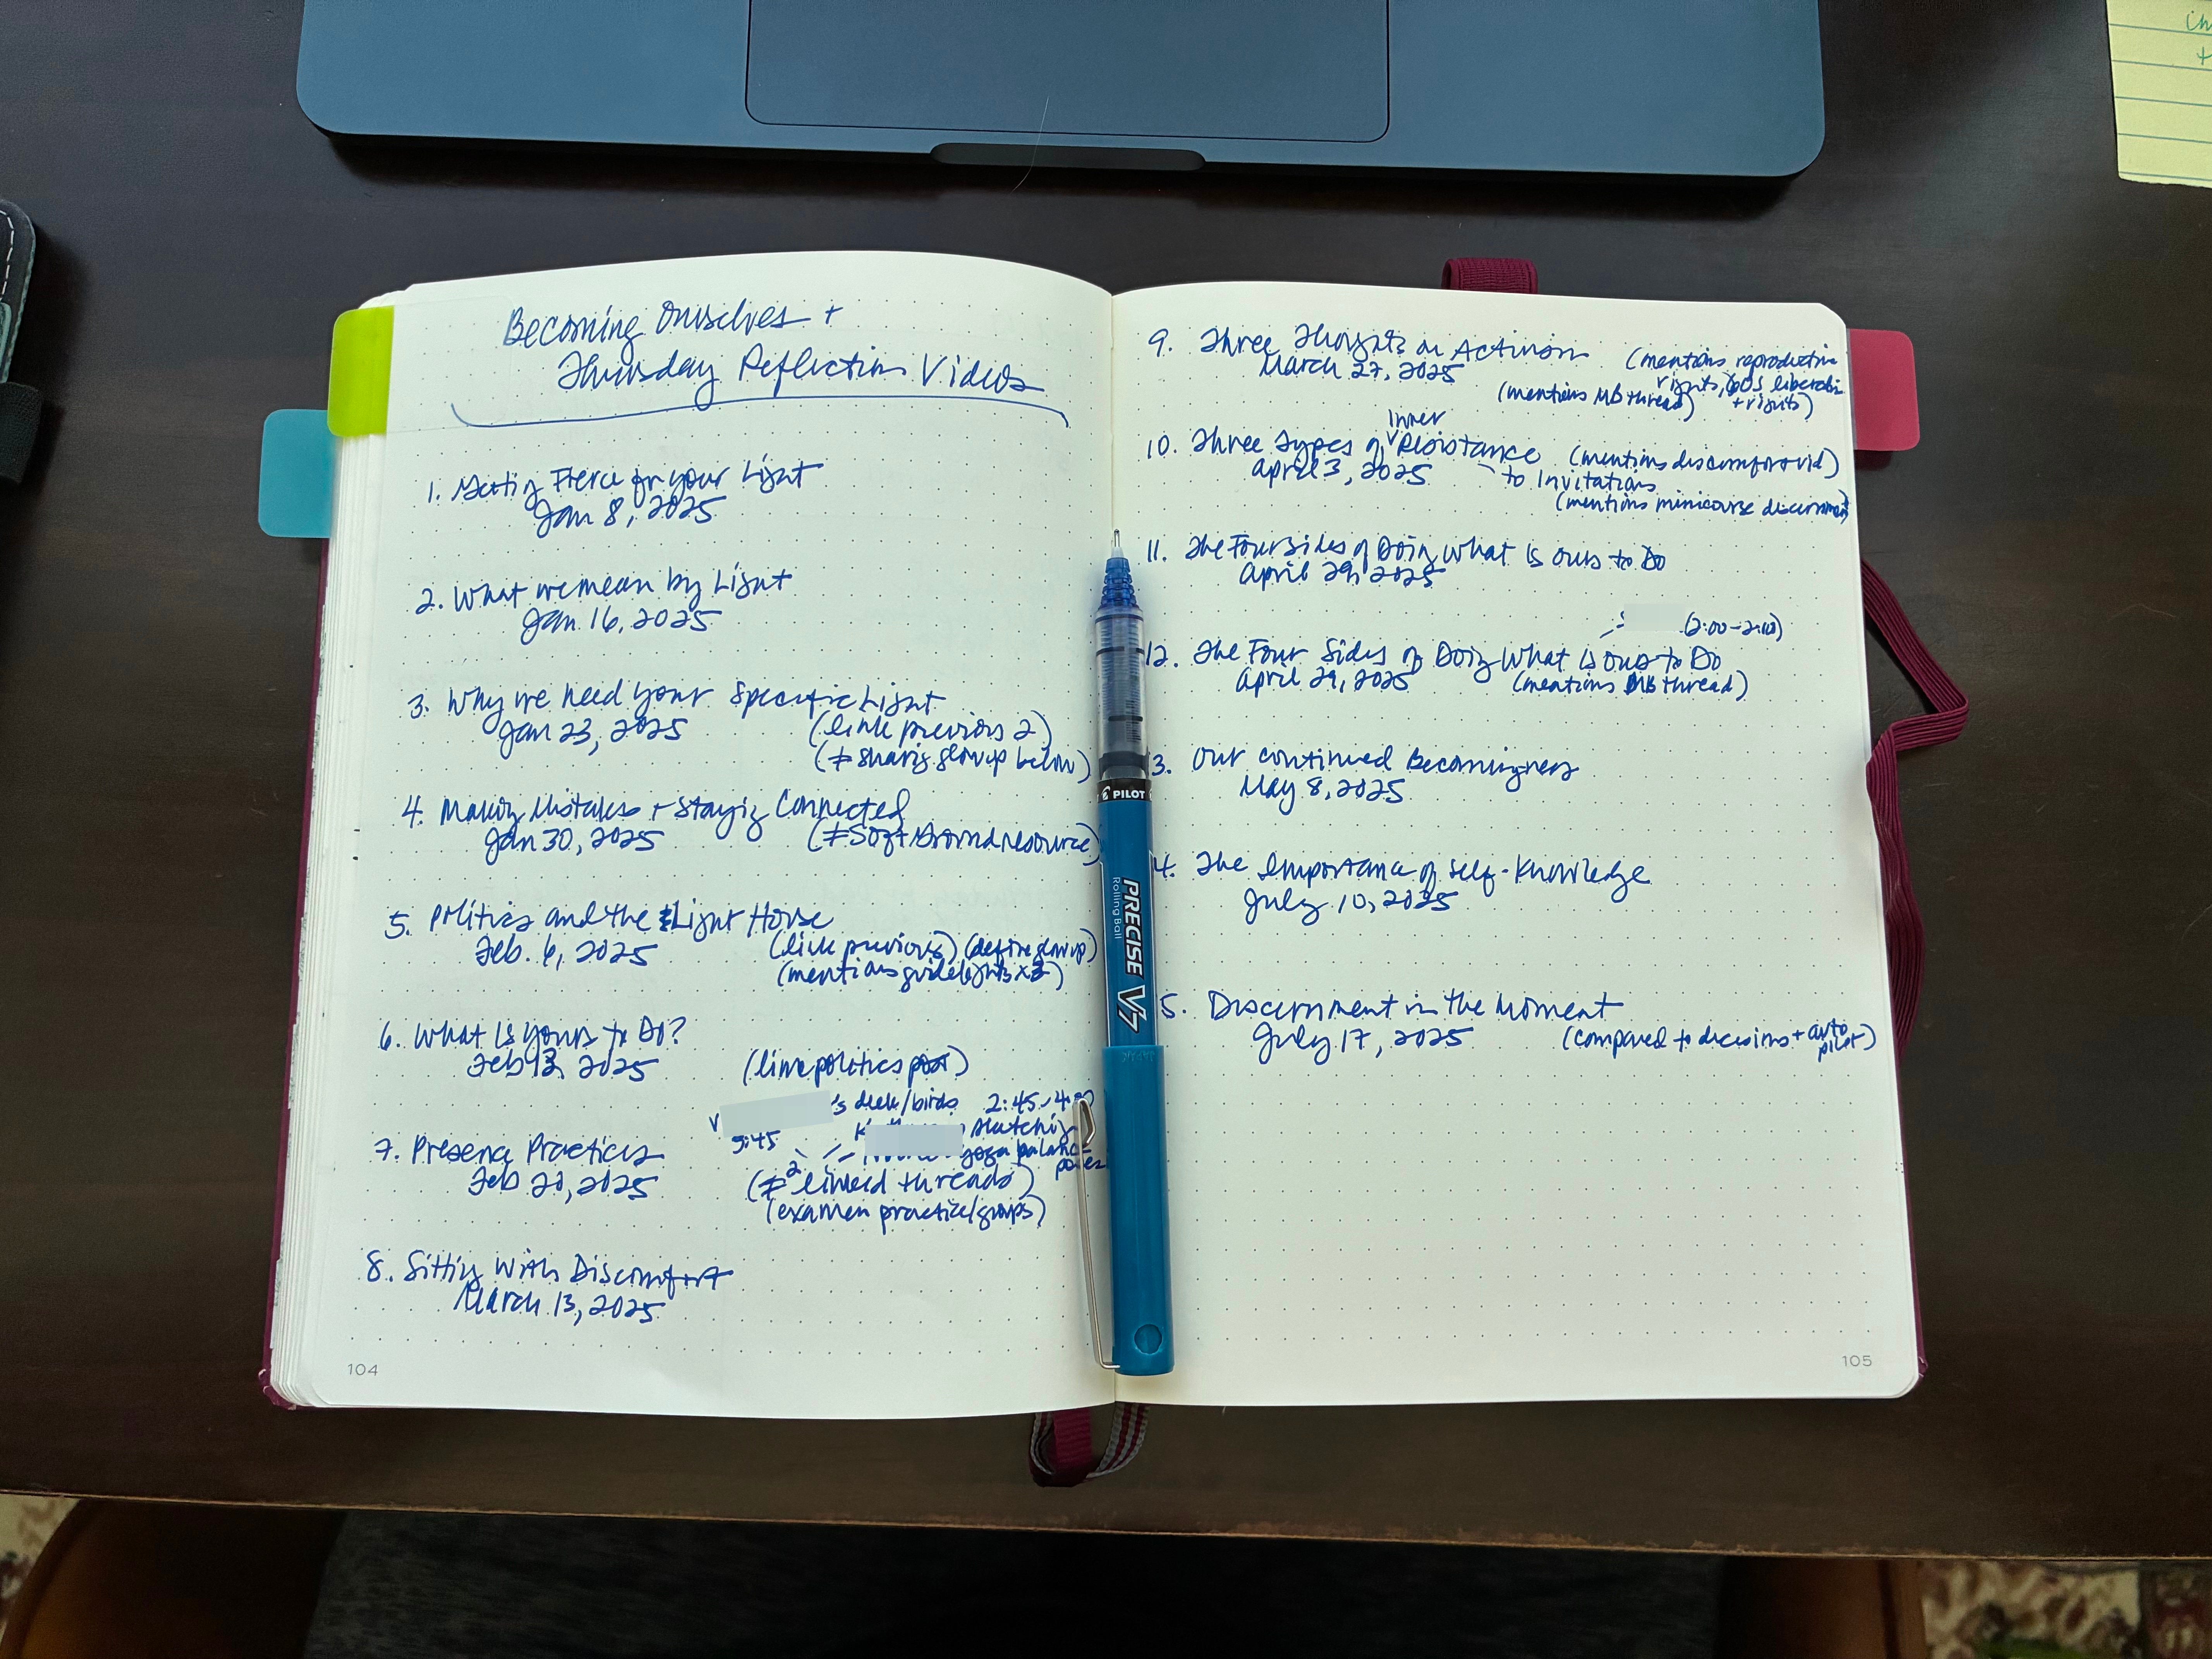 Becoming Ourselves +
Thursday Reflection Videos
1. Getting Fierce for your Light
Jan 8, 2025
2. What we mean by Light
Jan 16, 2025
3. Why we need your specific Light
Jan 23, 2025 (link previous 2)
(≠ sharing glow up below)
4. Making Mistakes + Staying Connected
Jan 30, 2025 (≠ Soft Ground resource)
5. Politics and the Light House
Feb. 6, 2025 (link previous) (define glow up)
(mentions guidelights x3)
6. What Is Yours to Do?
Feb 13, 2025 (link politics post)
's desk/birds 2:45-4:
5:45
yoga balance
poses
7. Presence Practices
Feb 20, 2025 (≠ 2 linked threads)
(examen practice/groups)
8. Sitting With Discomfort
March 13, 2025
104
9. Three Thoughts on Activism (mentions reproductive
March 27, 2025 rights, liberation
(mentions MB thread) + rights)
10. Three Types of Inner Resistance (mentions discomfort vid)
April 3, 2025 to Invitations
(mentions minicourse discernment)
11. The Four Sides of Doing What Is Ours to Do
April 29, 2025
(2:00-2:10)
12. The Four Sides of Doing What Is Ours to Do
April 29, 2025 (mentions MB thread)
3. Our Continued Becomingness
May 8, 2025
4. The Importance of Self-Knowledge
July 10, 2025
5. Discernment in the Moment
July 17, 2025 (compared to decisions + auto
pilot)
105
PILOT
PRECISE V7
Rolling Ball